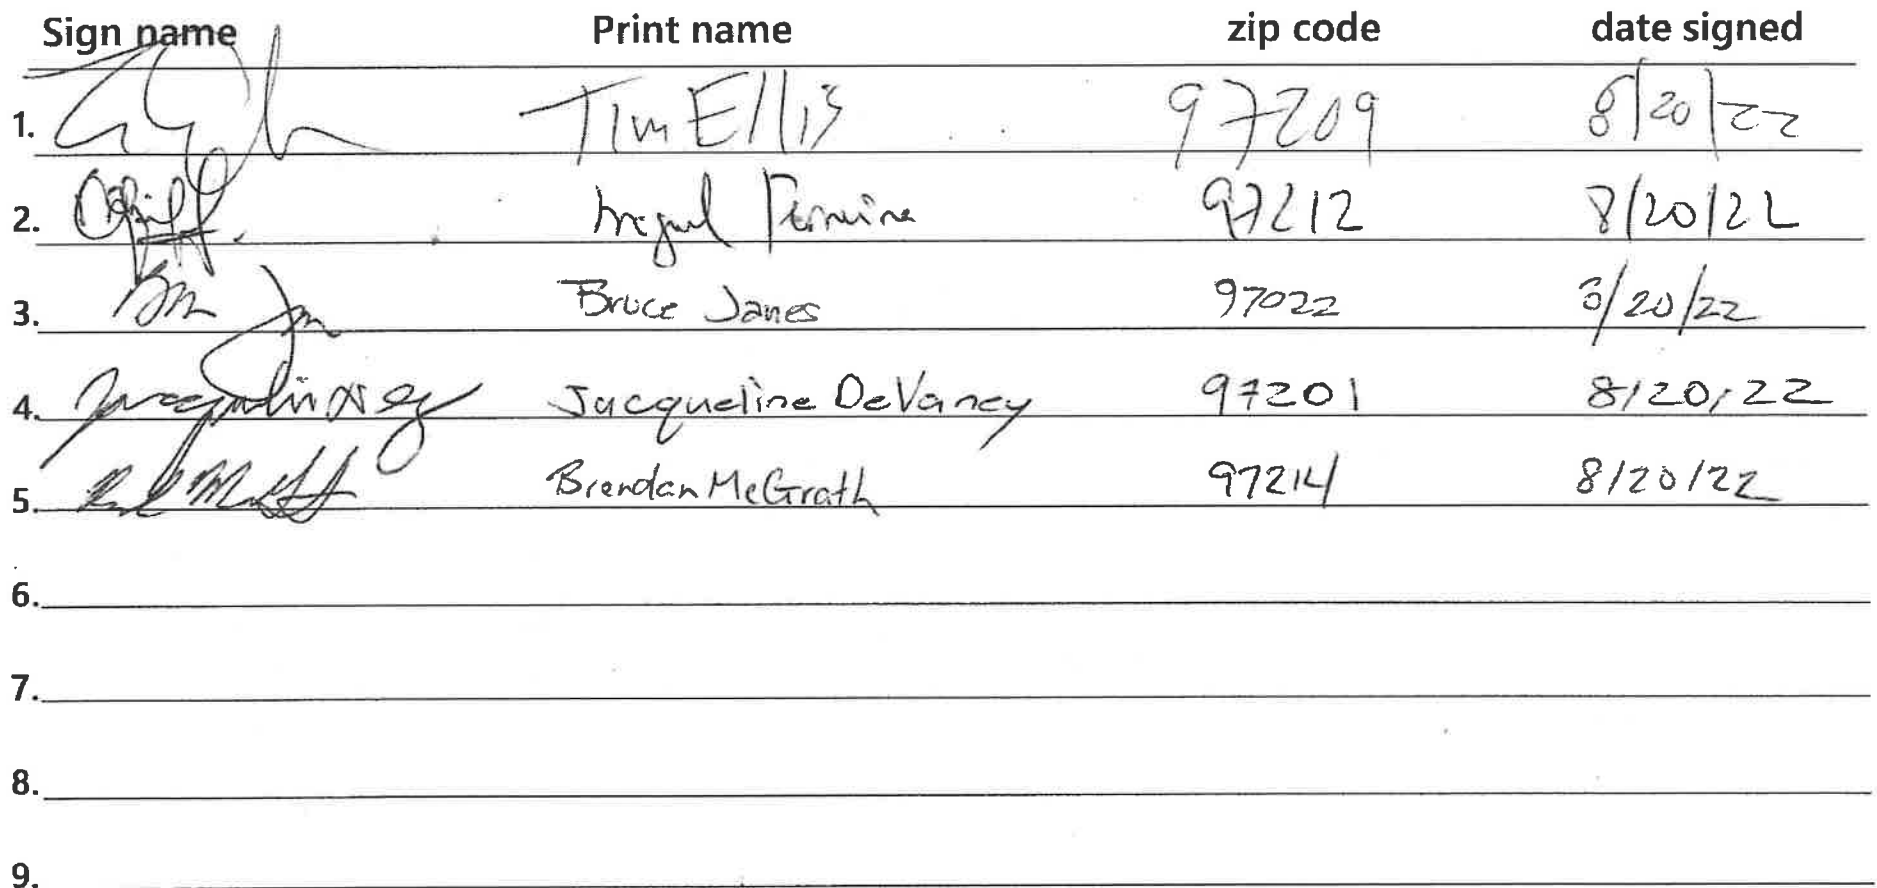 Sign name Print name zip code date signed
1. Tim Ellis 97209 8/20/22
2. 97212 8/20/22
3. Bruce Janes 97022 8/20/22
4. Jacqueline DeVaney 97201 8/20/22
5. Brendan McGrath 97214 8/20/22
6.
7.
8.
9.